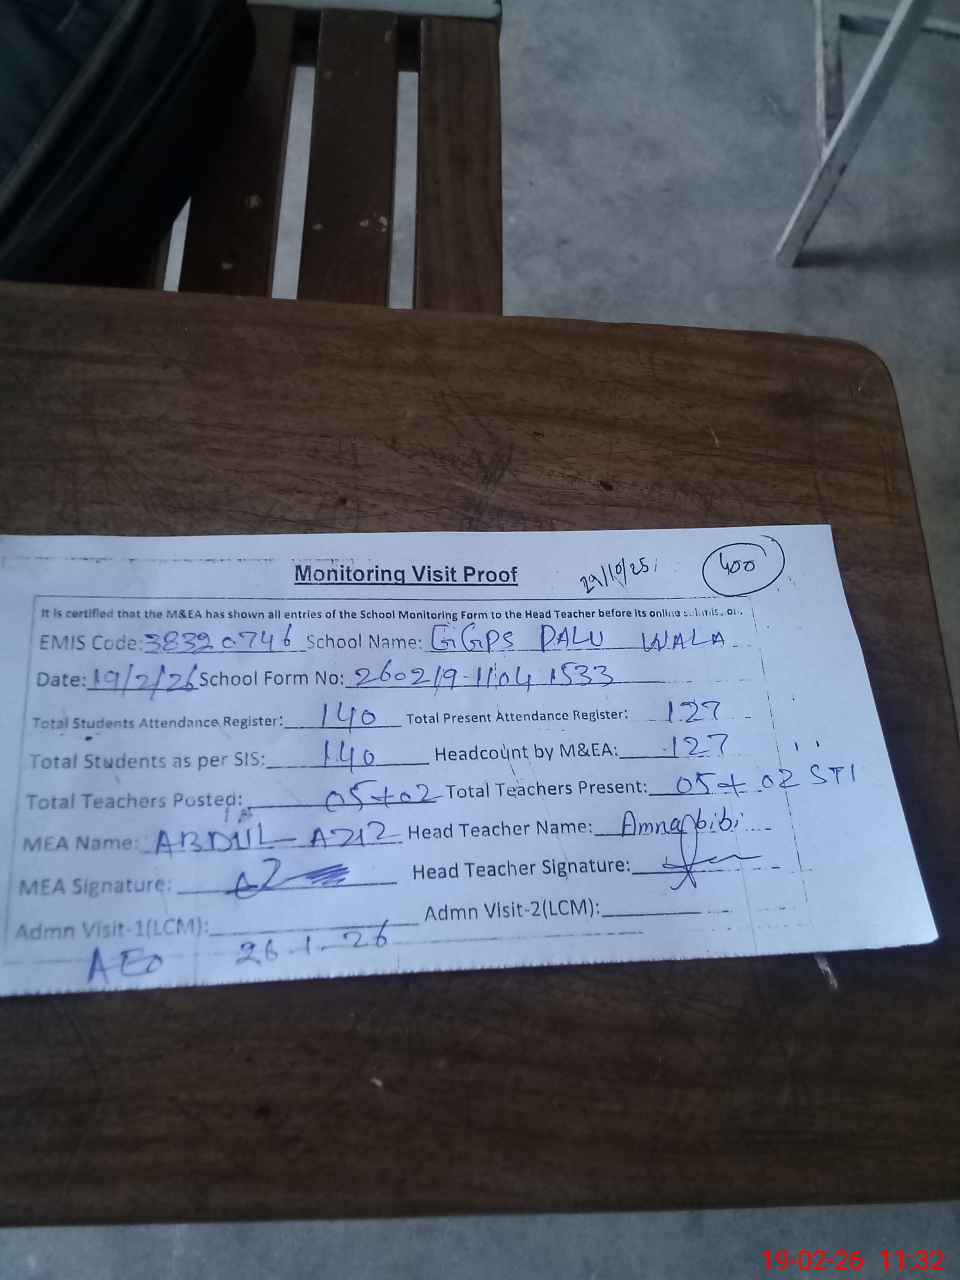 Monitoring Visit Proof 29/10/25 400
It is certified that the M&EA has shown all entries of the School Monitoring Form to the Head Teacher before its online
EMIS Code: 38320746 School Name: GGPS DALU WALA
Date: 19/2/26 School Form No: 260219-1104 1533
Total Students Attendance Register: 140 Total Present Attendance Register: 127
Total Students as per SIS: 140 Headcount by M&EA: 127
Total Teachers Posted: 05+02 Total Teachers Present: 05+02 STI
MEA Name: ABDUL-AZIZ Head Teacher Name: Amna bibi
MEA Signature: Head Teacher Signature:
Admn Visit-1(LCM): Admn Visit-2(LCM):
AEO 26-1-26
19-02-26 11:32